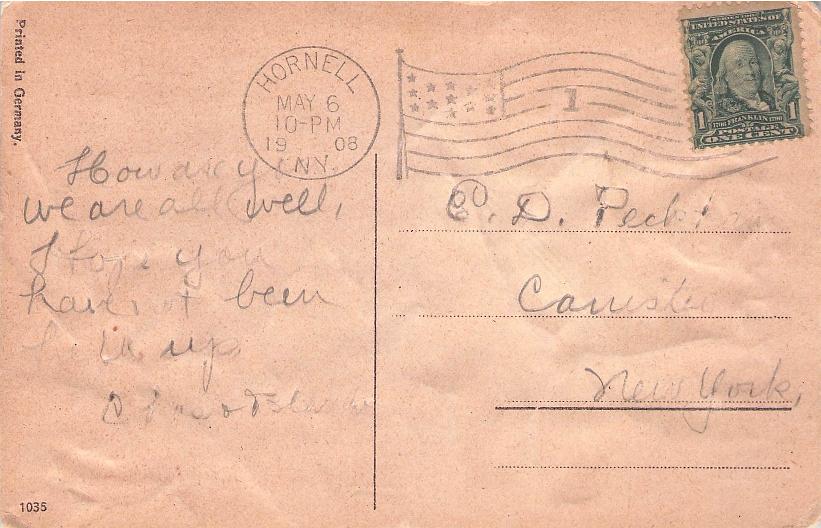 Printed in Germany.
HORNELL
MAY 6
10-PM
19 08
N.Y.
1
SERIES 1902
UNITED STATES OF
AMERICA
1 1
1706 FRANKLIN 1790
POSTAGE
ONE CENT
How are you
we are all well,
I Hope you
have not been
held up
C. D. Peckham
Canisteo
New York,
1035